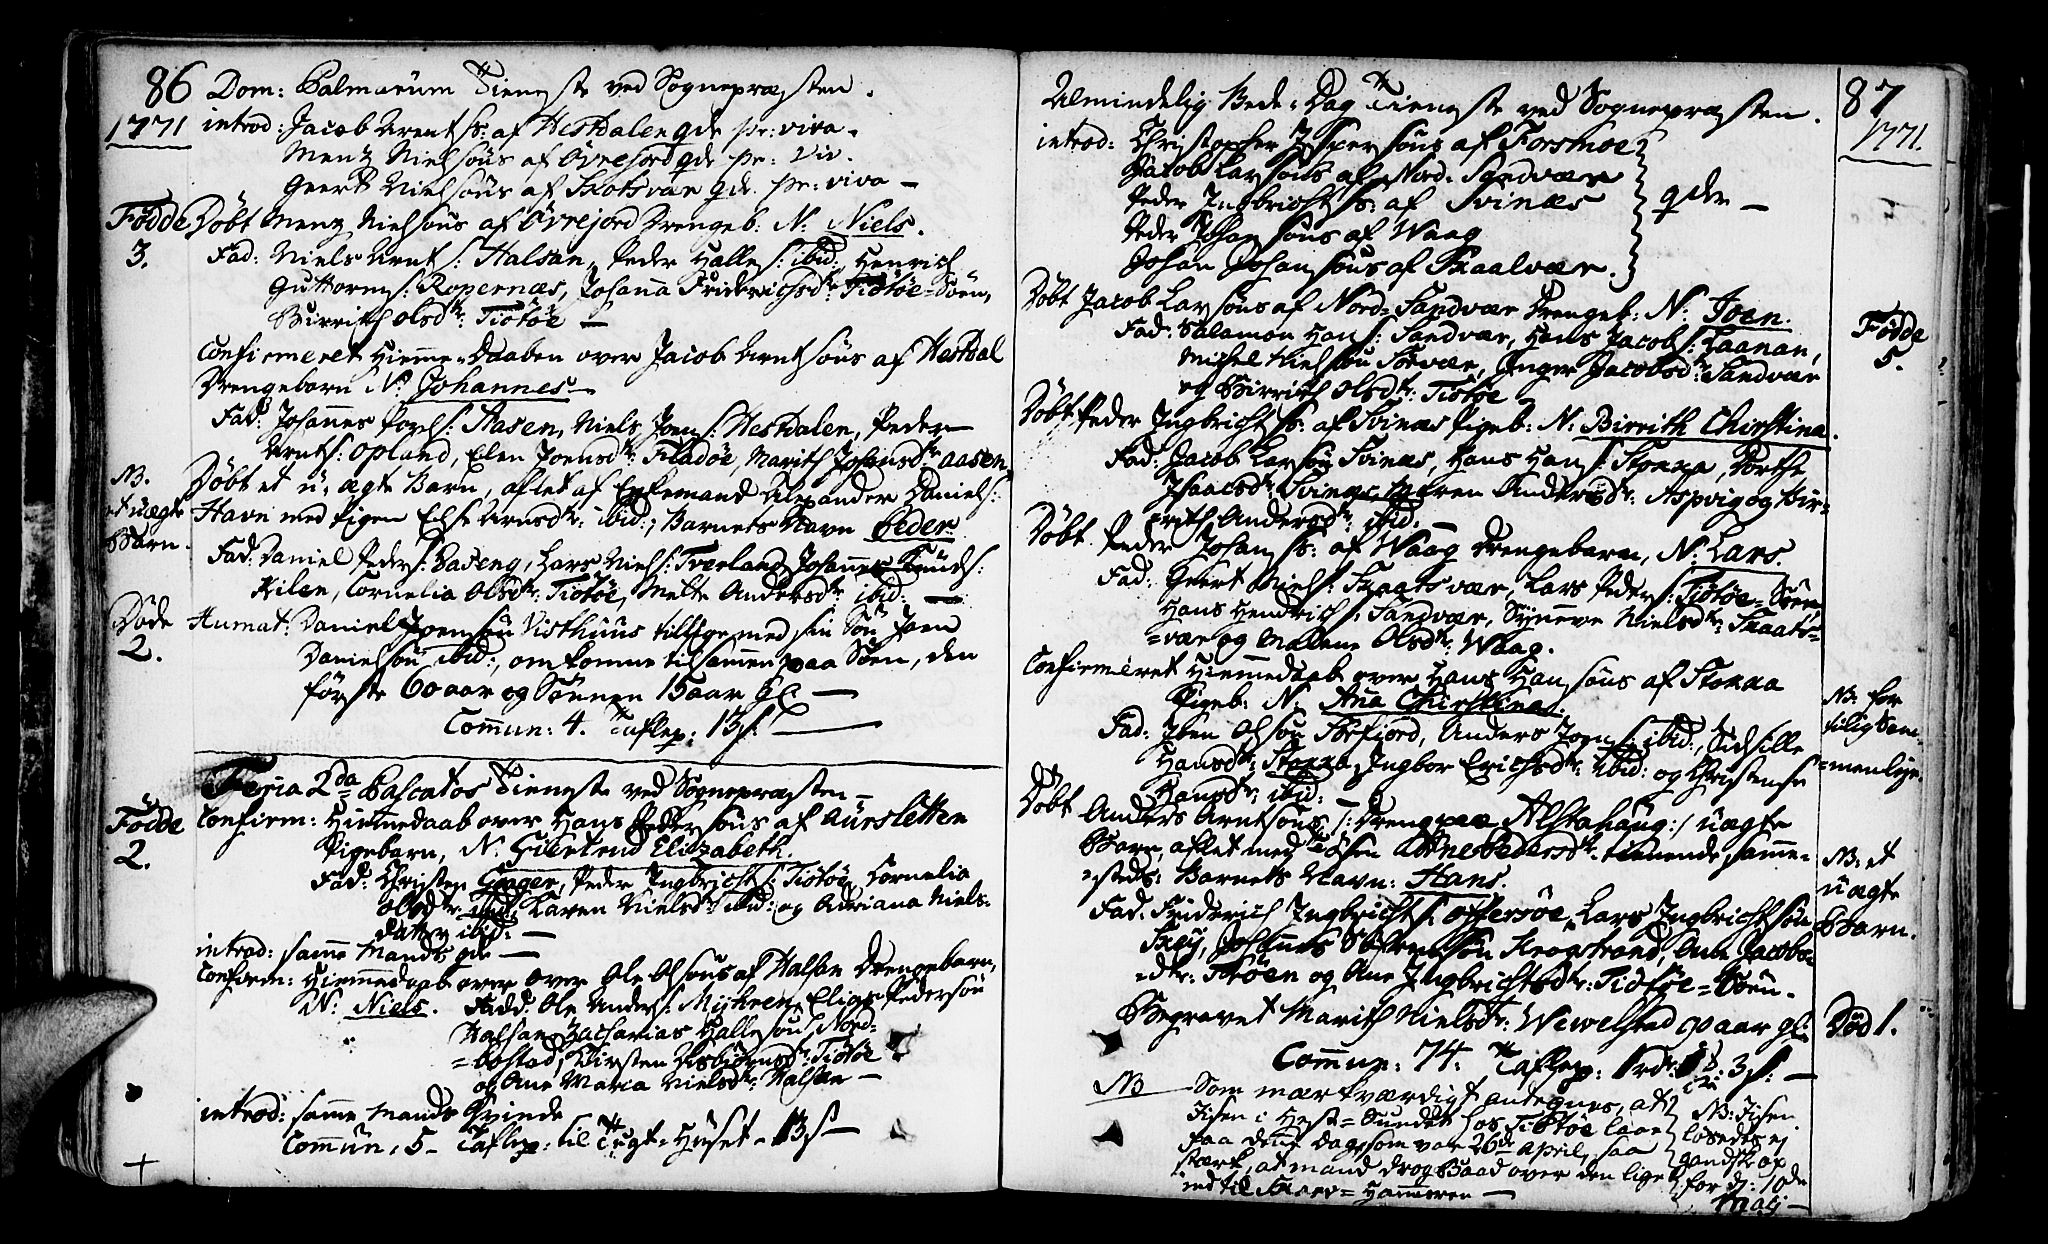 86
1771
Dom: Palmarum Tieneste ved Sognepræsten.
introd: Jacob Arnt ss: af Hestdalen qde pr: viva.
Mentz Nielsøns af Øvrejord qde pr: viv.
Geert Nielsøns af Skotsvær qde. pr: viva —
Fødde
3.
Døbt Mentz Nielsøns af Øvrejord Drengeb: N: Niels.
Fad: Niels Arnt s: Halsan, Peder Halle s: ibid, Henrich
Guttorm s: Ropernæs, Johanna Friderichsdr: Tiötöe=Søen,
Birrith Olsdr: Tiötöe —
Confirmeret Hieme=Daaben over Jacob Arntsøns af Hestdal
Drengebarn N: Johannes
Fad: Johannes Poels: Aasen, Niels Joen s: Hestdalen, Peder
Arnts: Opland, Elen Joensdr: Fladøe, Marith Johansdr: Aasen
NB.
et uægte
Barn.
Døbt et u=ægte Barn, aflet af Egtemand Alexander Daniels:
Havn med Pigen Else Arnsdr: ibid:, Barnets Navn Peder.
Fad: Daniel Peder s: Baseng, Lars Niels: Tverland, Johannes Knuds:
Kilen, Cornelia Olsdr: Tiötöe, Mette Andersdr ibid: —
Døde
2.
Humat: Daniel Joensøn Visthuus tillige med sin Søn Joen
Danielsøn ibid:, omkomne tilsammen paa Søen, den
første 60 aar og Sønnen 15 aar gl —
Commun: 4. Taflep: 13 s: —
Feria 2da Pascatos Tieneste ved Sognepræsten —
Fødde
2.
Confirm: Hiemmedaab over Hans Peder søns af Aursletten
Pigebarn, N: Giertrud Elizabeth.
Fad: Christen Grager, Peder Ingbricht s: Tiötöe, Cornelia
Olsdr: ibid: Karen Nielsdr: ibid: og Adriana Niels-
datter ibid: —
introd: samme Mands qde —
Confirm: Hiemmedaab over over Ole Olsøns af Halsan Drengebarn,
N: Niels. Fadd: Ole Anders: Myhren, Elias Pedersøn
Halsan, Zacharias Hallesøn Nord=
=bostad, Kirsten Asbiörnsdr: Tiötöe
og Ane Maria Nielsdr: Halsan —
introd: samme Mands Qvinde
Commun: 5 — Taflep: til Tugt=Huset — 13 s —
87
1771.
Almindelig Bede=Dag Tieneste ved Sognepræsten.
introd: Christopher Jespersøns af Forsmoe
Jacob Larsøns af Nord=Sandvær
Peder Ingbricht ss: af Svinæs
Peder Johan søns af Waag
Johan Johan søns af Skaalvær.
qder —
Fødde
5.
Døbt Jacob Larsøns af Nord=Sandvær Drengeb: N: Joen.
Fad: Salamon Han s: Sandvær, Hans Jacob s: Laanan,
Michel Nielsøn Sørvær, Inger Jacobsdr: Sandvær
og Birrith Olsdr: Tiötöe
Døbt Peder Ingbricht ss: af Svinæs Pigeb: N: Birrith Chirstina.
Fad: Jacob Larsøn Svinæs, Hans Han s: Stokka, Dorthe
Isaacsdr: Svinæs, Maren Andersdr: Aspvig og Bir=
rith Andersdr: ibid: —
Døbt Peder Johan ss: af Waag Drengebarn, N: Lars.
Fad: Geert Niels: Skaatsvær, Lars Peder s: Tiötöe=Søen
Hans Hendrich s: Sandvær, Synneve Nielsdr: Skaats=
=vær og Malene Olsdr: Waag.
Confirmeret Hiemmedaab over Hans Han søns af Stokka
Pigeb: N: Ana Chirstina.
NB: for
tilig Sam-
=menleje.
Fad: Iben Olsøn Sørfiord, Anders Joen s: ibid:, Sidsille
Hansdr: Stokka, Ingbor Erichsdr: ibid: og Christense
Hansdr: ibid: —
Døbt Anders Arntsøns /: Dreng paa Alstahaug :/ uægte
Barn, aflet med Tøsen Anne Pedersdr: tienende samme-
steds: Barnets Navn: Hans.
NB: et
uægte
Barn.
Fad: Friderich Ingbricht s: Offersøe, Lars Ingbricht søn
Skey, Johannes Søfrensøn Krogstrand, Ane Jacobs=
=dr: Tiötöen og Ane Ingbrichtsdr: Tiötöe=Søen.
Begravet Marith Nielsdr: Wewelstad 90 aar gl:
Død 1.
Commun: 74. Taflep: 1 rdr: 3 s: —
NB Som mærkværdigt antegnes, at
Jisen i Hest=Sundet hos Tiötöe laae
paa denne Dag, som var 26de April, saa
stærk, at mand drog Baad over den lige
ind til Skaru=Hammeren —
NB: Jisen
løsedes ej
gandske op
for d: 10de
Maij —